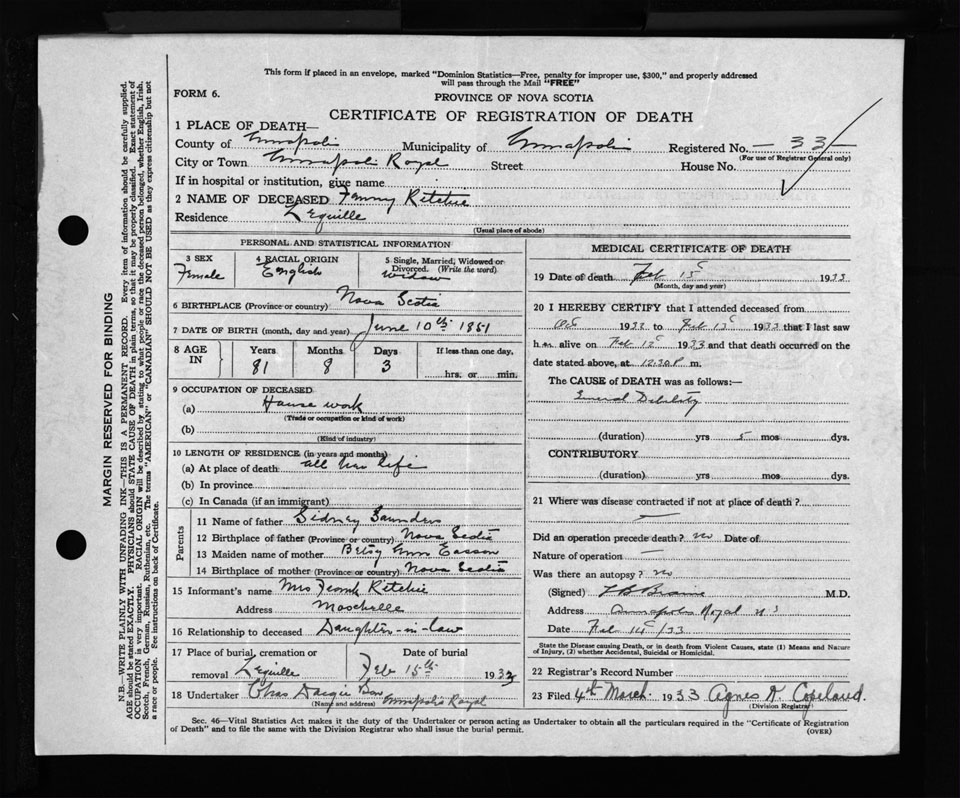 This form if placed in an envelope, marked "Dominion Statistics—Free, penalty for improper use, $300," and properly addressed
will pass through the Mail "FREE"
FORM 6.
PROVINCE OF NOVA SCOTIA
CERTIFICATE OF REGISTRATION OF DEATH
1 PLACE OF DEATH—
County of Annapolis Municipality of Annapolis Registered No. — 33 —
(For use of Registrar General only)
City or Town Annapolis Royal Street House No.
If in hospital or institution, give name
2 NAME OF DECEASED Fanny Ritchie
Residence Lequille
(Usual place of abode)
PERSONAL AND STATISTICAL INFORMATION
3 SEX 4 RACIAL ORIGIN 5 Single, Married, Widowed or
Divorced. (Write the word)
Female English Widow
6 BIRTHPLACE (Province or country) Nova Scotia
7 DATE OF BIRTH (month, day and year) June 10th 1851
8 AGE IN Years Months Days If less than one day,
81 8 3 hrs. or min.
9 OCCUPATION OF DECEASED
(a) House work
(Trade or occupation or kind of work)
(b)
(Kind of industry)
10 LENGTH OF RESIDENCE (in years and months)
(a) At place of death all her life
(b) In province
(c) In Canada (if an immigrant)
Parents
11 Name of father Sidney Saunders
12 Birthplace of father (Province or country) Nova Scotia
13 Maiden name of mother Betsy Ann Easson
14 Birthplace of mother (Province or country) Nova Scotia
15 Informant's name Mrs Frank Ritchie
Address Moschelle
16 Relationship to deceased Daughter-in-law
17 Place of burial, cremation or Date of burial
removal Lequille Feb 15th 1933
18 Undertaker Chas Dargie Son
(Name and address) Annapolis Royal
MEDICAL CERTIFICATE OF DEATH
19 Date of death Feb 13 1933
(Month, day and year)
20 I HEREBY CERTIFY that I attended deceased from
Oct 1932 to Feb 13 1933 that I last saw
h er alive on Feb 12 1933 and that death occurred on the
date stated above, at 12.30 P m.
The CAUSE of DEATH was as follows:—
General Debility
(duration) yrs 5 mos dys.
CONTRIBUTORY
(duration) yrs mos dys.
21 Where was disease contracted if not at place of death?
Did an operation precede death? no Date of
Nature of operation —
Was there an autopsy? no
(Signed) L B Braine M.D.
Address Annapolis Royal N S
Date Feb 14 /33
State the Disease causing Death, or in death from Violent Causes, state (1) Means and Nature
of Injury, (2) whether Accidental, Suicidal or Homicidal.
22 Registrar's Record Number
23 Filed 4th March. 1933 Agnes D. Copeland.
(Division Registrar)
Sec. 46—Vital Statistics Act makes it the duty of the Undertaker or person acting as Undertaker to obtain all the particulars required in the "Certificate of Registration
of Death" and to file the same with the Division Registrar who shall issue the burial permit.
(OVER)
MARGIN RESERVED FOR BINDING
N.B.—WRITE PLAINLY WITH UNFADING INK—THIS IS A PERMANENT RECORD. Every item of information should be carefully supplied.
AGE should be stated EXACTLY. PHYSICIANS should STATE CAUSE OF DEATH in plain terms, so that it may be properly classified. Exact statement of
OCCUPATION is very important. RACIAL ORIGIN will be described by stating to what people or race the deceased person belonged, whether English, Irish,
Scotch, French, German, Russian, Ruthenian, etc. The terms "AMERICAN" or "CANADIAN" SHOULD NOT BE USED as they express citizenship but not
a race or people. See instructions on back of Certificate.